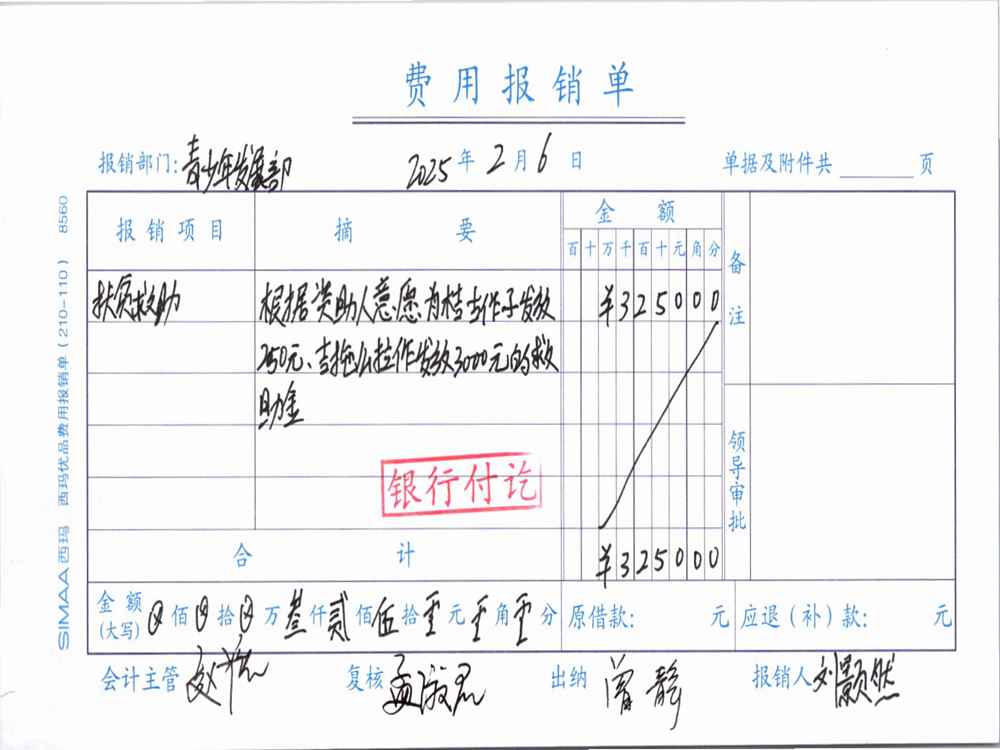 费用报销单
报销部门:青少年发展部 2025年2月6日 单据及附件共 页
报销项目 摘要 金额 备注
百十万千百十元角分
扶贫救助 根据资助人意愿为桔吉作子发放 ¥325000
250元、吉拖么拉作发放3000元的救
助金
银行付讫
领导审批
合计 ¥325000
金额(大写) 佰 拾 万叁仟贰佰伍拾 元 角 分 原借款: 元 应退(补)款: 元
会计主管 复核 孟淑君 出纳 曾静 报销人 刘颢然
SIMAA西玛 西玛优品费用报销单(210-110) 8560